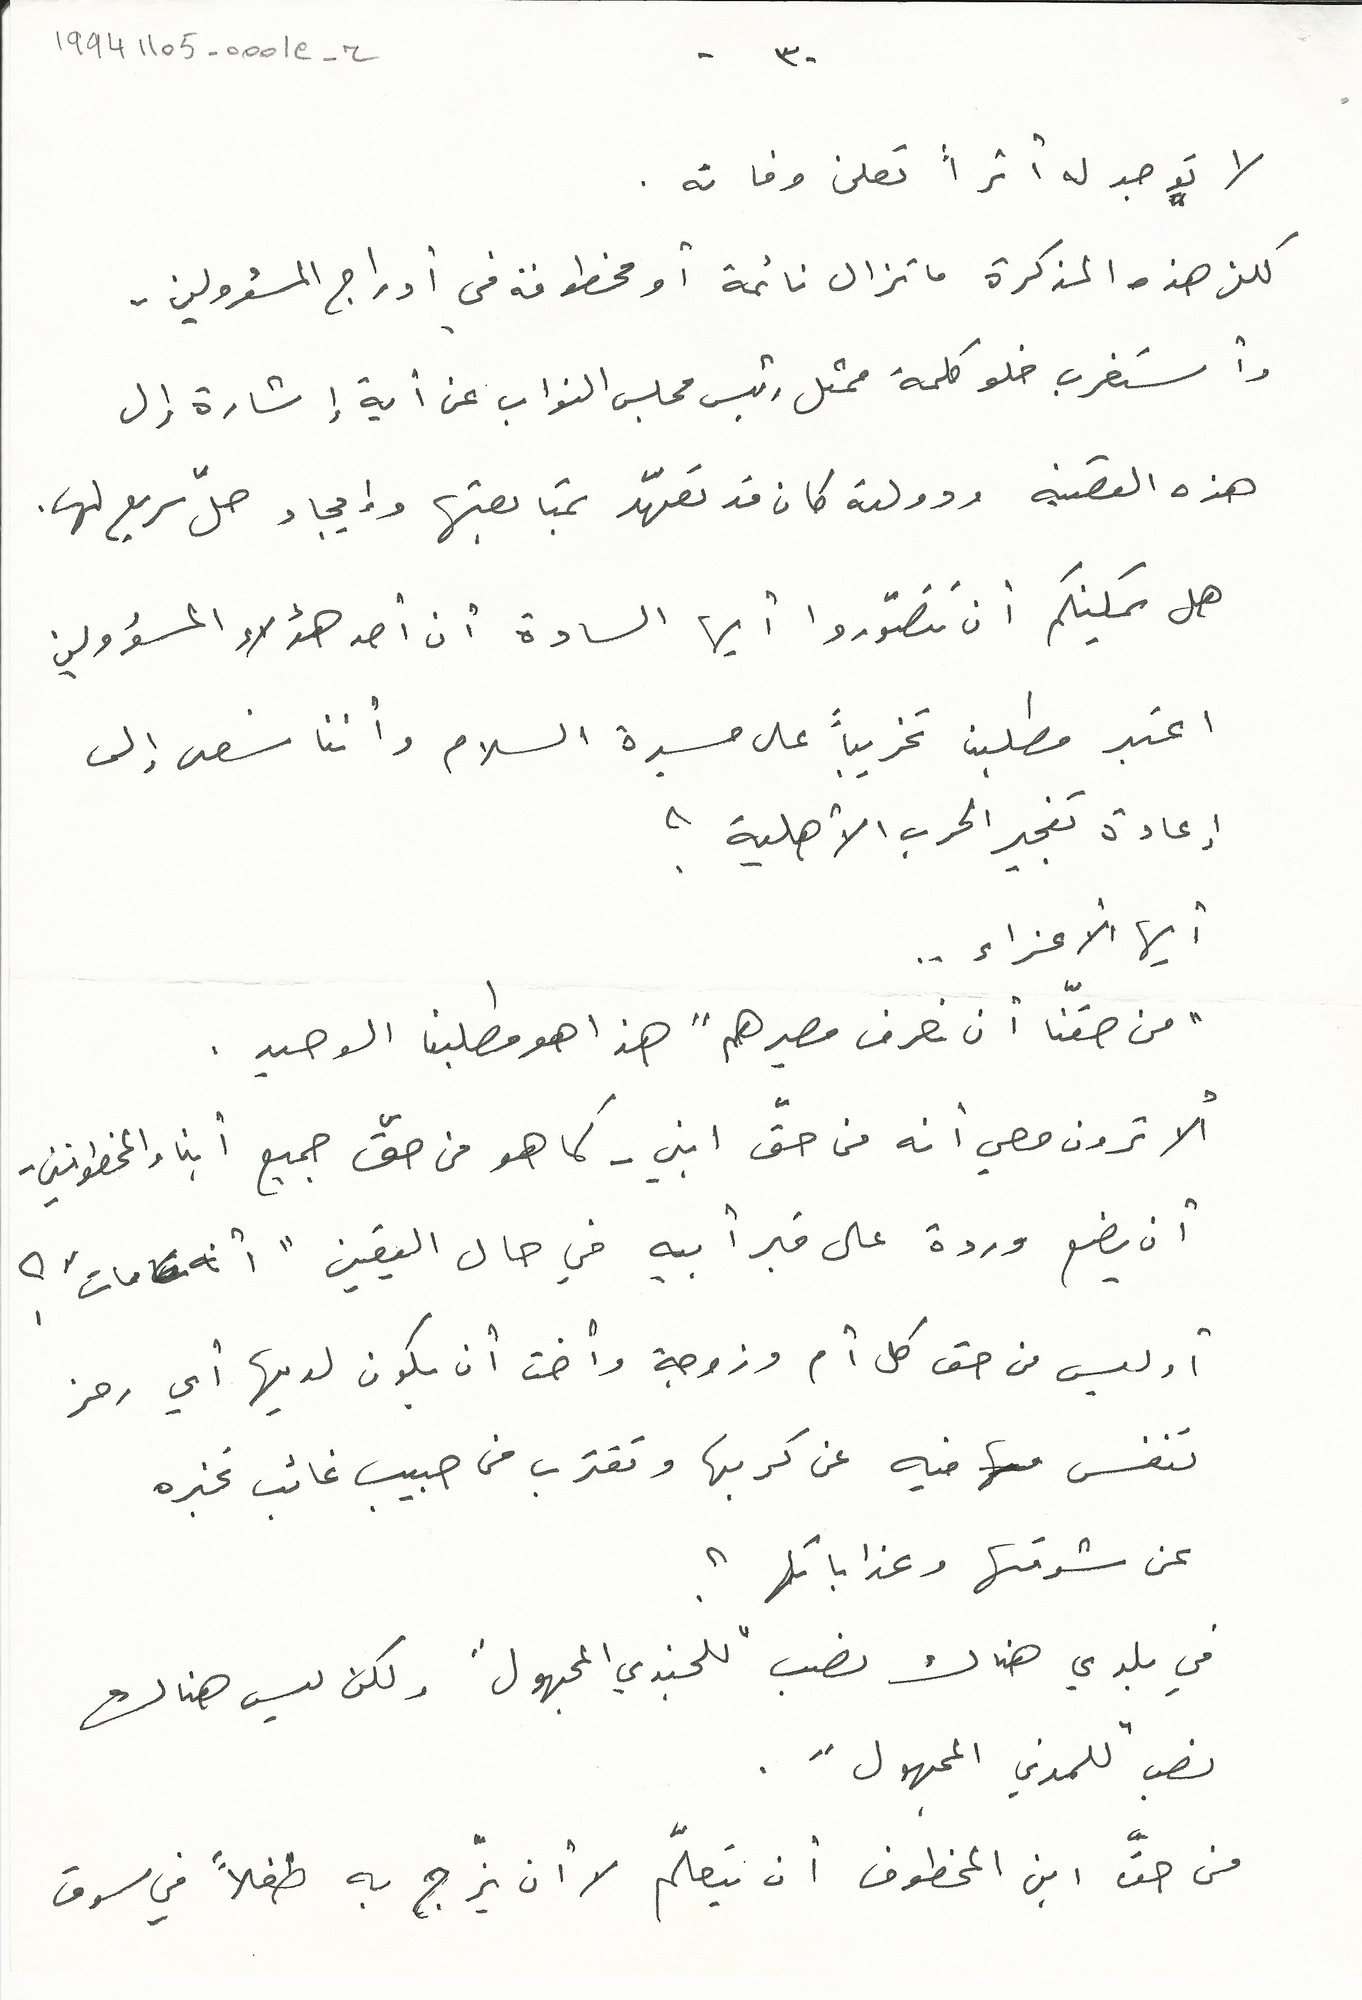 19941105-0001e-r
-٣-
لا توجد له أثراً تعلن وفاته .
لكن هذه المذكرة ما تزال نائمة أو مخطوفة في أدراج المسؤولين -
وأستغرب خلو كلمة ممثل رئيس مجلس النواب عن أية إشارة إلى
هذه القضية ودولته كان قد تعهّد بمتابعتها وإيجاد حلّ سريع لها .
هل يمكنكم أن تتصّوروا أيها السادة أن أحد هؤلاء المسؤولين
اعتبر مطلبنا تخريباً على مسيرة السلام وأننا نسعى إلى
إعادة تفجير الحرب الأهلية ؟
أيها الأعزاء ..
"من حقّنا أن نعرف مصيرهم" هذا هو مطلبنا الوحيد .
ألا ترون معي أنه من حقّ ابني - كما هو من حقّ جميع أبناء المخطوفين -
أن يضع وردة على قبر أبيه في حال اليقين "أنه مات" ؟
أوليس من حق كل أم وزوجة وأخت أن يكون لديها أي رمز
تنفس فيه عن كربها وتقترب من حبيب غائب تخبره
عن شوقها وعذاباتها ؟
في بلدي هناك نصب "للجندي المجهول" ولكن ليس هناك
نصب "للمدني المجهول" .
من حقّ ابن المخطوف أن يتعلّم لا أن يزّج به طفلاً في سوق